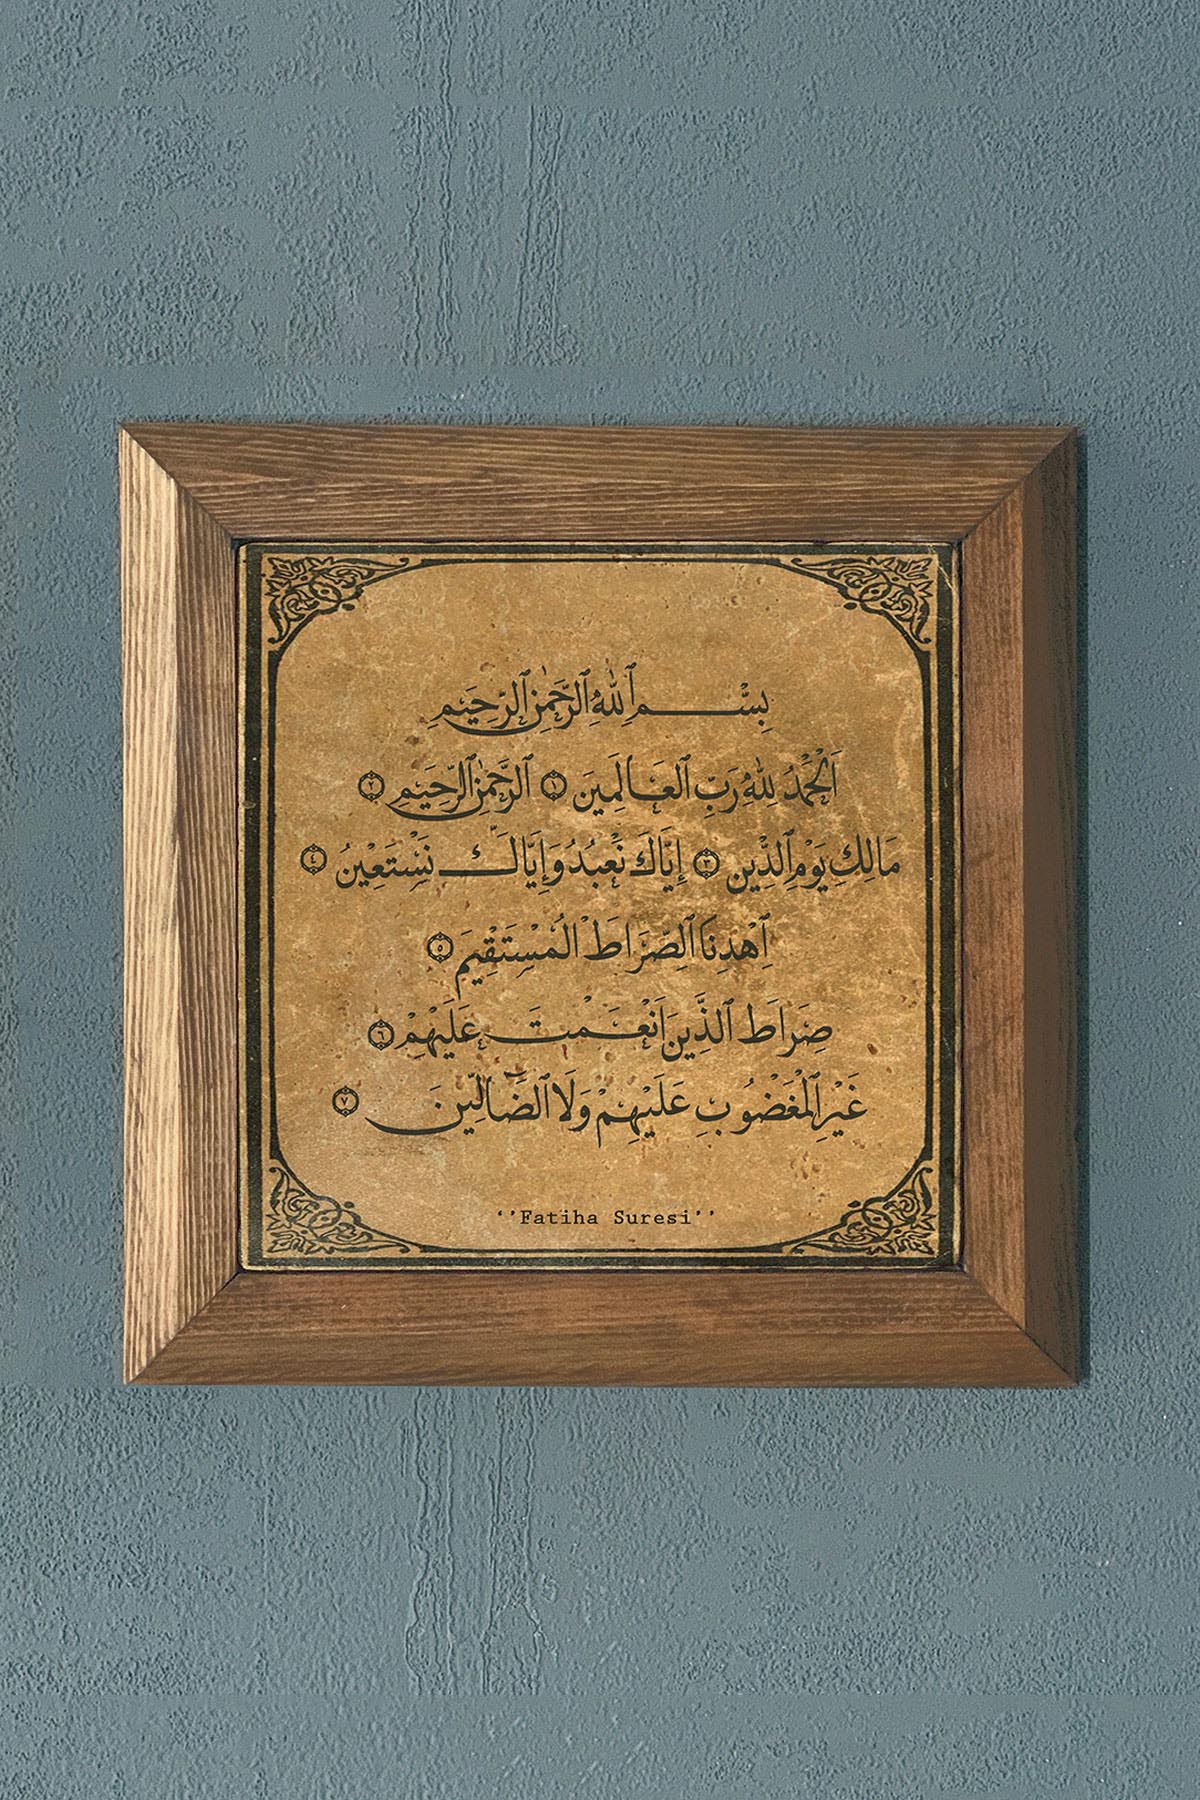 بِسْمِ ٱللهِ ٱلرَّحْمٰنِ ٱلرَّحِيمِ
اَلْحَمْدُ لِلّٰهِ رَبِّ ٱلْعَالَمِينَ ١ ٱلرَّحْمٰنِ ٱلرَّحِيمِ ٢
مَالِكِ يَوْمِ ٱلدِّينِ ٣ إِيَّاكَ نَعْبُدُ وَإِيَّاكَ نَسْتَعِينُ ٤
ٱهْدِنَا ٱلصِّرَاطَ الْمُسْتَقِيمَ ٥
صِرَاطَ ٱلَّذِينَ اَنْعَمْتَ عَلَيْهِمْ ٦
غَيْرِ ٱلْمَغْضُوبِ عَلَيْهِمْ وَلَا ٱلضَّالِّينَ ٧
‘’Fatiha Suresi’’